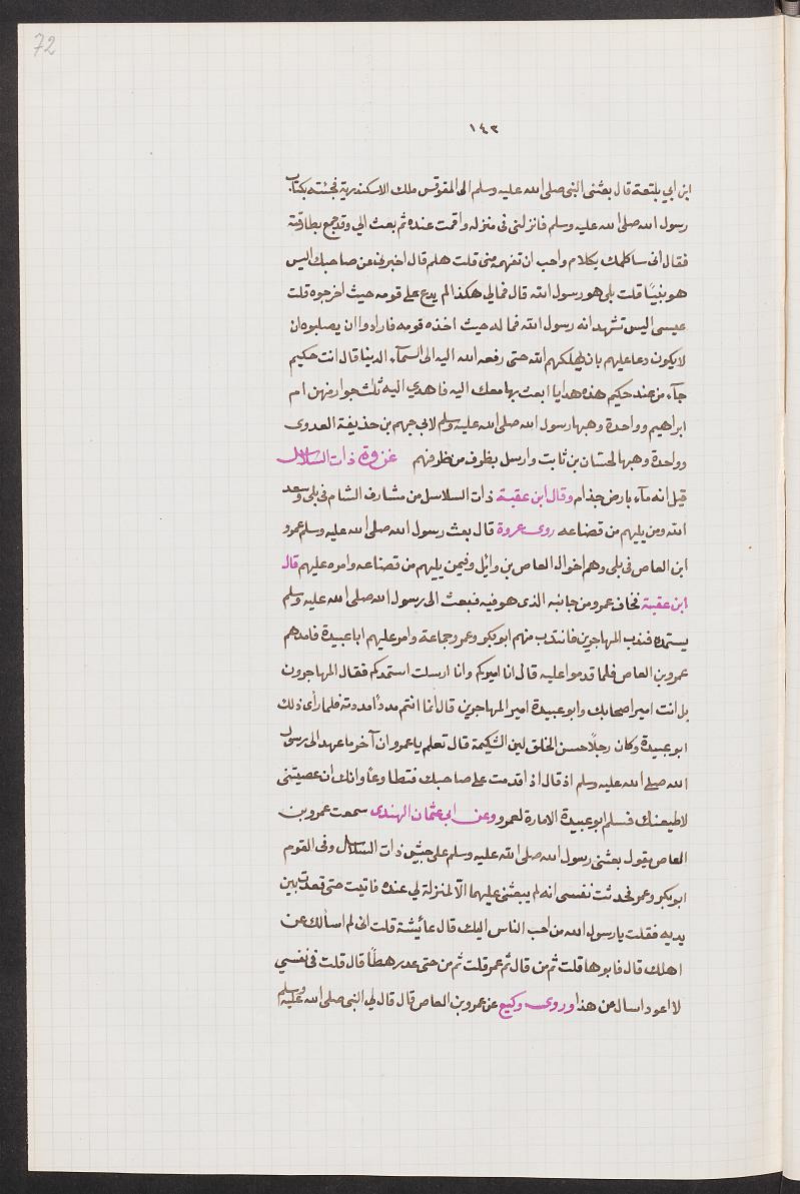 72
١٤٣
ابن ابي بلتعة قال بعثني النبي صلى الله عليه وسلم الى المقوقس ملك الاسكندرية فجئته بكتاب
رسول الله صلى الله عليه وسلم فانزلني في منزله واقمت عنده ثم بعث الي وقد جمع بطارقته
فقال اني ساكلمك بكلام واحب ان تفهمه مني قلت هلم قال اخبرني عن صاحبك اليس
هو بنبيًا قلت بلى هو رسول الله قال فما لي هكذا لم يدع على قومه حيث اخرجوه قلت
عيسى اليس تشهد انه رسول الله فما له حيث اخذه قومه فارادوا ان يصلبوه ان
لا يكون دعا عليهم بان يهلكهم الله حتى رفعه الله اليه الى السمآء الدنيا قال انت حكيم
جآء من عند حكيم هذه هدايا ابعث بها معك اليه فاهدي اليه ثلث جوار منهن ام
ابراهيم وواحدة وهبها رسول الله صلى الله عليه وسلم لابي جهم بن حذيفة العدوى
وواحدة وهبها لحسان بن ثابت وارسل بظرف من ظرفهم غزوة ذات السلاسل
قيل انه مآء بارض جذام وقال ابن عقبة ذات السلاسل من مشارف الشام في بلى وسعد
الله ومن يليهم من قضاعه روى عروة قال بعث رسول الله صلى الله عليه وسلم عمرو
ابن العاص في بلى وهم اخوال العاص بن وائل وفيمن يليهم من قضاعه وامره عليهم قال
ابن عقبة فخاف عمرو من جانبه الذى هو فيه فبعث الى رسول الله صلى الله عليه وسلم
يستمده فندب المهاجرين فانتدب منهم ابو بكر وعمر وجماعة وامر عليهم ابا عبيدة فامدهم
عمرو بن العاص فلما قدموا عليه قال انا اميركم وانا ارسلت استمدكم فقال المهاجرون
بل انت امير اصحابك وابو عبيدة امير المهاجرين قال انما انتم مدد امددته فلما راى ذلك
ابو عبيدة وكان رجلًا حسن الخلق لين الشكيمة قال تعلم يا عمرو ان آخر ما عهد الى رسول
الله صلى الله عليه وسلم اذ قال اذا قدمت على صاحبك فتطاوعا وانك ان عصيتني
لاطيعنك فسلم ابو عبيدة الامارة لعمرو وعن ابى عثمان الهندى سمعت عمرو بن
العاص يقول بعثني رسول الله صلى الله عليه وسلم على جيش ذات السلاسل وفى القوم
ابو بكر وعمر فحدثت نفسى انه لم يبعثني عليهما الّا لمنزلة لي عنده فاتيت حتى قعدت بين
يديه فقلت يا رسول الله من احب الناس اليك قال عائيشة قلت انى لم اسالك عن
اهلك قال فابوها قلت ثم من قال ثم عمر قلت ثم من حتى عد رهطًا قال قلت في نفسي
لا اعود اسال عن هذا وروى وكيع عن عمرو بن العاص قال قال لي النبي صلى الله عليه وسلم